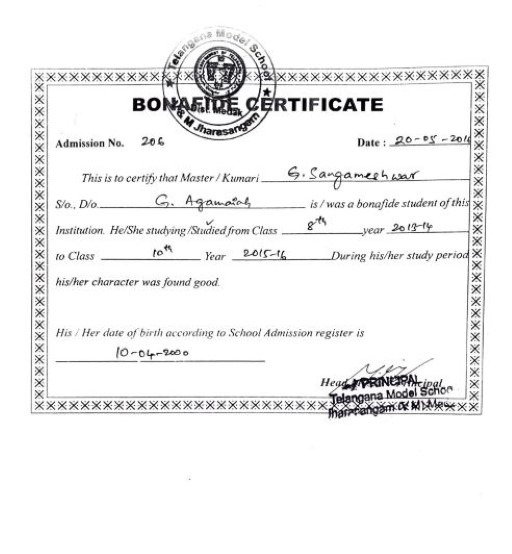 Telangana Model School
Dist. Medak
V & M Jharasangam
BONAFIDE CERTIFICATE
Admission No. 206 Date : 20-05-2016
This is to certify that Master / Kumari G. Sangameshwar
S/o., D/o. G. Agamaiah is / was a bonafide student of this
Institution. He/She studying /Studied from Class 8th year 2013-14
to Class 10th Year 2015-16 During his/her study period
his/her character was found good.
His / Her date of birth according to School Admission register is
10-04-2000
Head Principal
PRINCIPAL
Telangana Model School
Jharasangam (V & M)